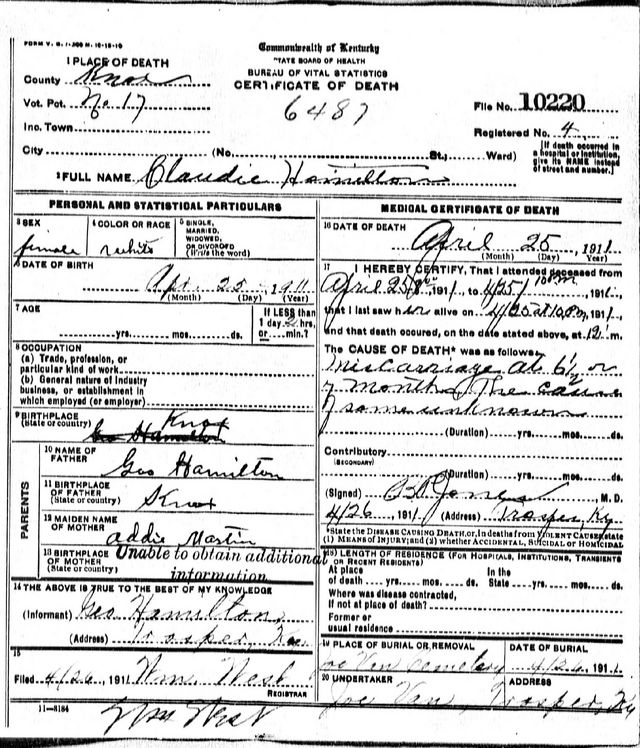 FORM V. S. 1-300 M. 10-18-10
Commonwealth of Kentucky
STATE BOARD OF HEALTH
BUREAU OF VITAL STATISTICS
CERTIFICATE OF DEATH
1 PLACE OF DEATH
County Knox
Vot. Pct. No 17
Inc. Town
City (No. St.; Ward)
6487
File No. 10220
Registered No. 4
[If death occurred in a hospital or institution, give its NAME instead of street and number.]
2 FULL NAME Claudie Hamilton
PERSONAL AND STATISTICAL PARTICULARS
3 SEX
female
4 COLOR OR RACE
white
5 SINGLE, MARRIED, WIDOWED, OR DIVORCED (Write the word)
6 DATE OF BIRTH
Apr. 25, 1911
(Month) (Day) (Year)
7 AGE
yrs. mos. ds.
If LESS than 1 day 2 hrs. or min.?
8 OCCUPATION
(a) Trade, profession, or particular kind of work
(b) General nature of industry business, or establishment in which employed (or employer)
9 BIRTHPLACE
(State or country) Knox
Geo Hamilton
PARENTS
10 NAME OF FATHER
Geo Hamilton
11 BIRTHPLACE OF FATHER
(State or country) Knox
12 MAIDEN NAME OF MOTHER
Addie Martin
13 BIRTHPLACE OF MOTHER
(State or country)
Unable to obtain additional
information.
14 THE ABOVE IS TRUE TO THE BEST OF MY KNOWLEDGE
(Informant) Geo Hamilton,
(Address) Trosper, Ky.
15
Filed 4/26, 1911 Wm. West
REGISTRAR
11-3184
Wm West
MEDICAL CERTIFICATE OF DEATH
16 DATE OF DEATH
April 25, 1911
(Month) (Day) (Year)
17 I HEREBY CERTIFY, That I attended deceased from
April 25, 1911, to 4/25/ 10 P.M, 1911
that I last saw her alive on 4/25 at 10 P.M, 1911
and that death occured, on the date stated above, at 12 m.
The CAUSE OF DEATH* was as follows:
Miscarriage at 6½ or
7 months. The cause
of same unknown
(Duration) yrs. mos. ds.
Contributory
(SECONDARY)
(Duration) yrs. mos. ds.
(Signed) Jones, M. D.
4/26, 1911 (Address) Trosper, Ky
*State the DISEASE CAUSING DEATH, or, in deaths from VIOLENT CAUSES state (1) MEANS OF INJURY; and (2) whether ACCIDENTAL, SUICIDAL OR HOMICIDAL
18 LENGTH OF RESIDENCE (FOR HOSPITALS, INSTITUTIONS, TRANSIENTS OR RECENT RESIDENTS)
At place of death yrs. mos. ds. In the State yrs. mos. ds.
Where was disease contracted,
If not at place of death?
Former or usual residence
19 PLACE OF BURIAL OR REMOVAL
Joe Van Cemetery
DATE OF BURIAL
4/26, 1911
20 UNDERTAKER
Joe Van,
ADDRESS
Trosper, Ky